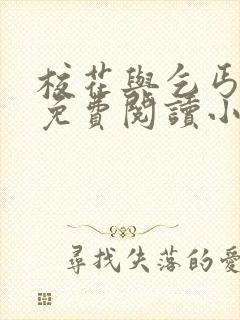 校花與乞丐
免費閱讀小
尋找失落的愛